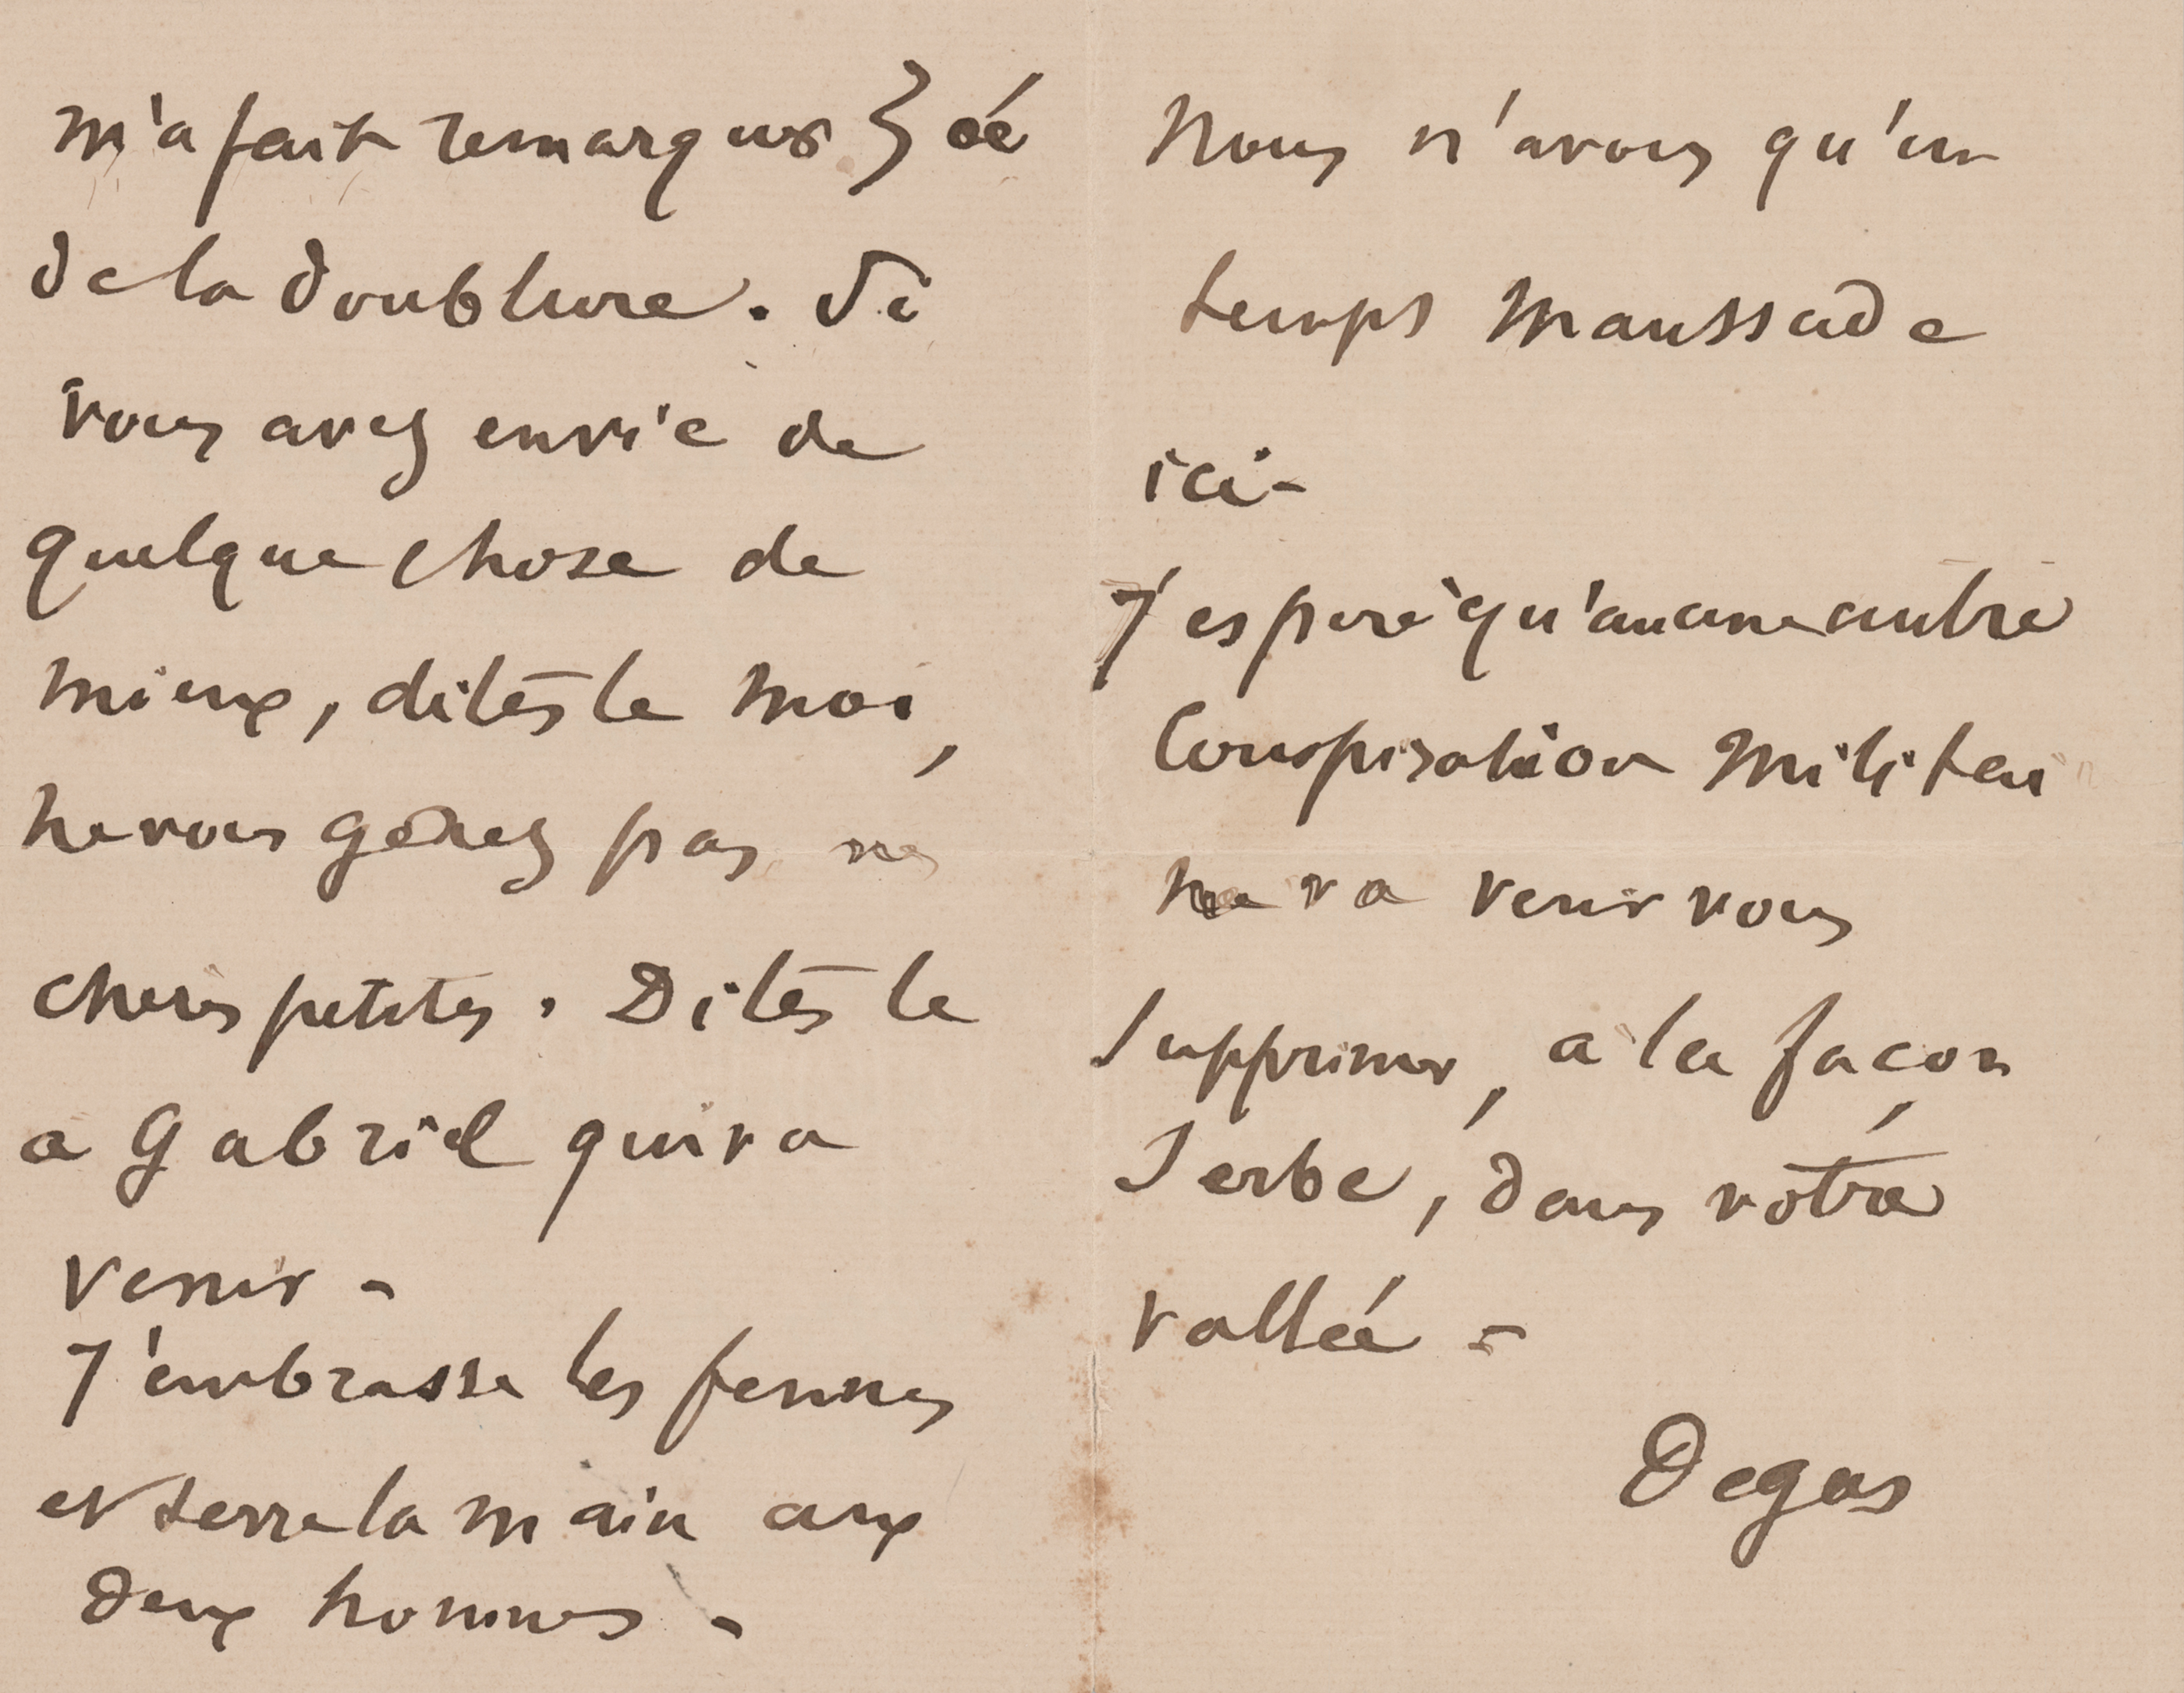 m'a fait remarquer Zoé
de la doublure. Si
vous avez envie de
quelque chose de
mieux, dites le moi,
ne vous gênez pas mes
cheres petites. Dites le
a Gabriel qui va
venir -
J'embrasse les femmes
et serre la main aux
deux hommes -
Nous n'avons qu'un
temps maussade
ici -
J'espere qu'aucune autre
Conspiration Militai
ne va venir vous
supprimer, à la façon
Serbe, dans votre
vallée =
Degas